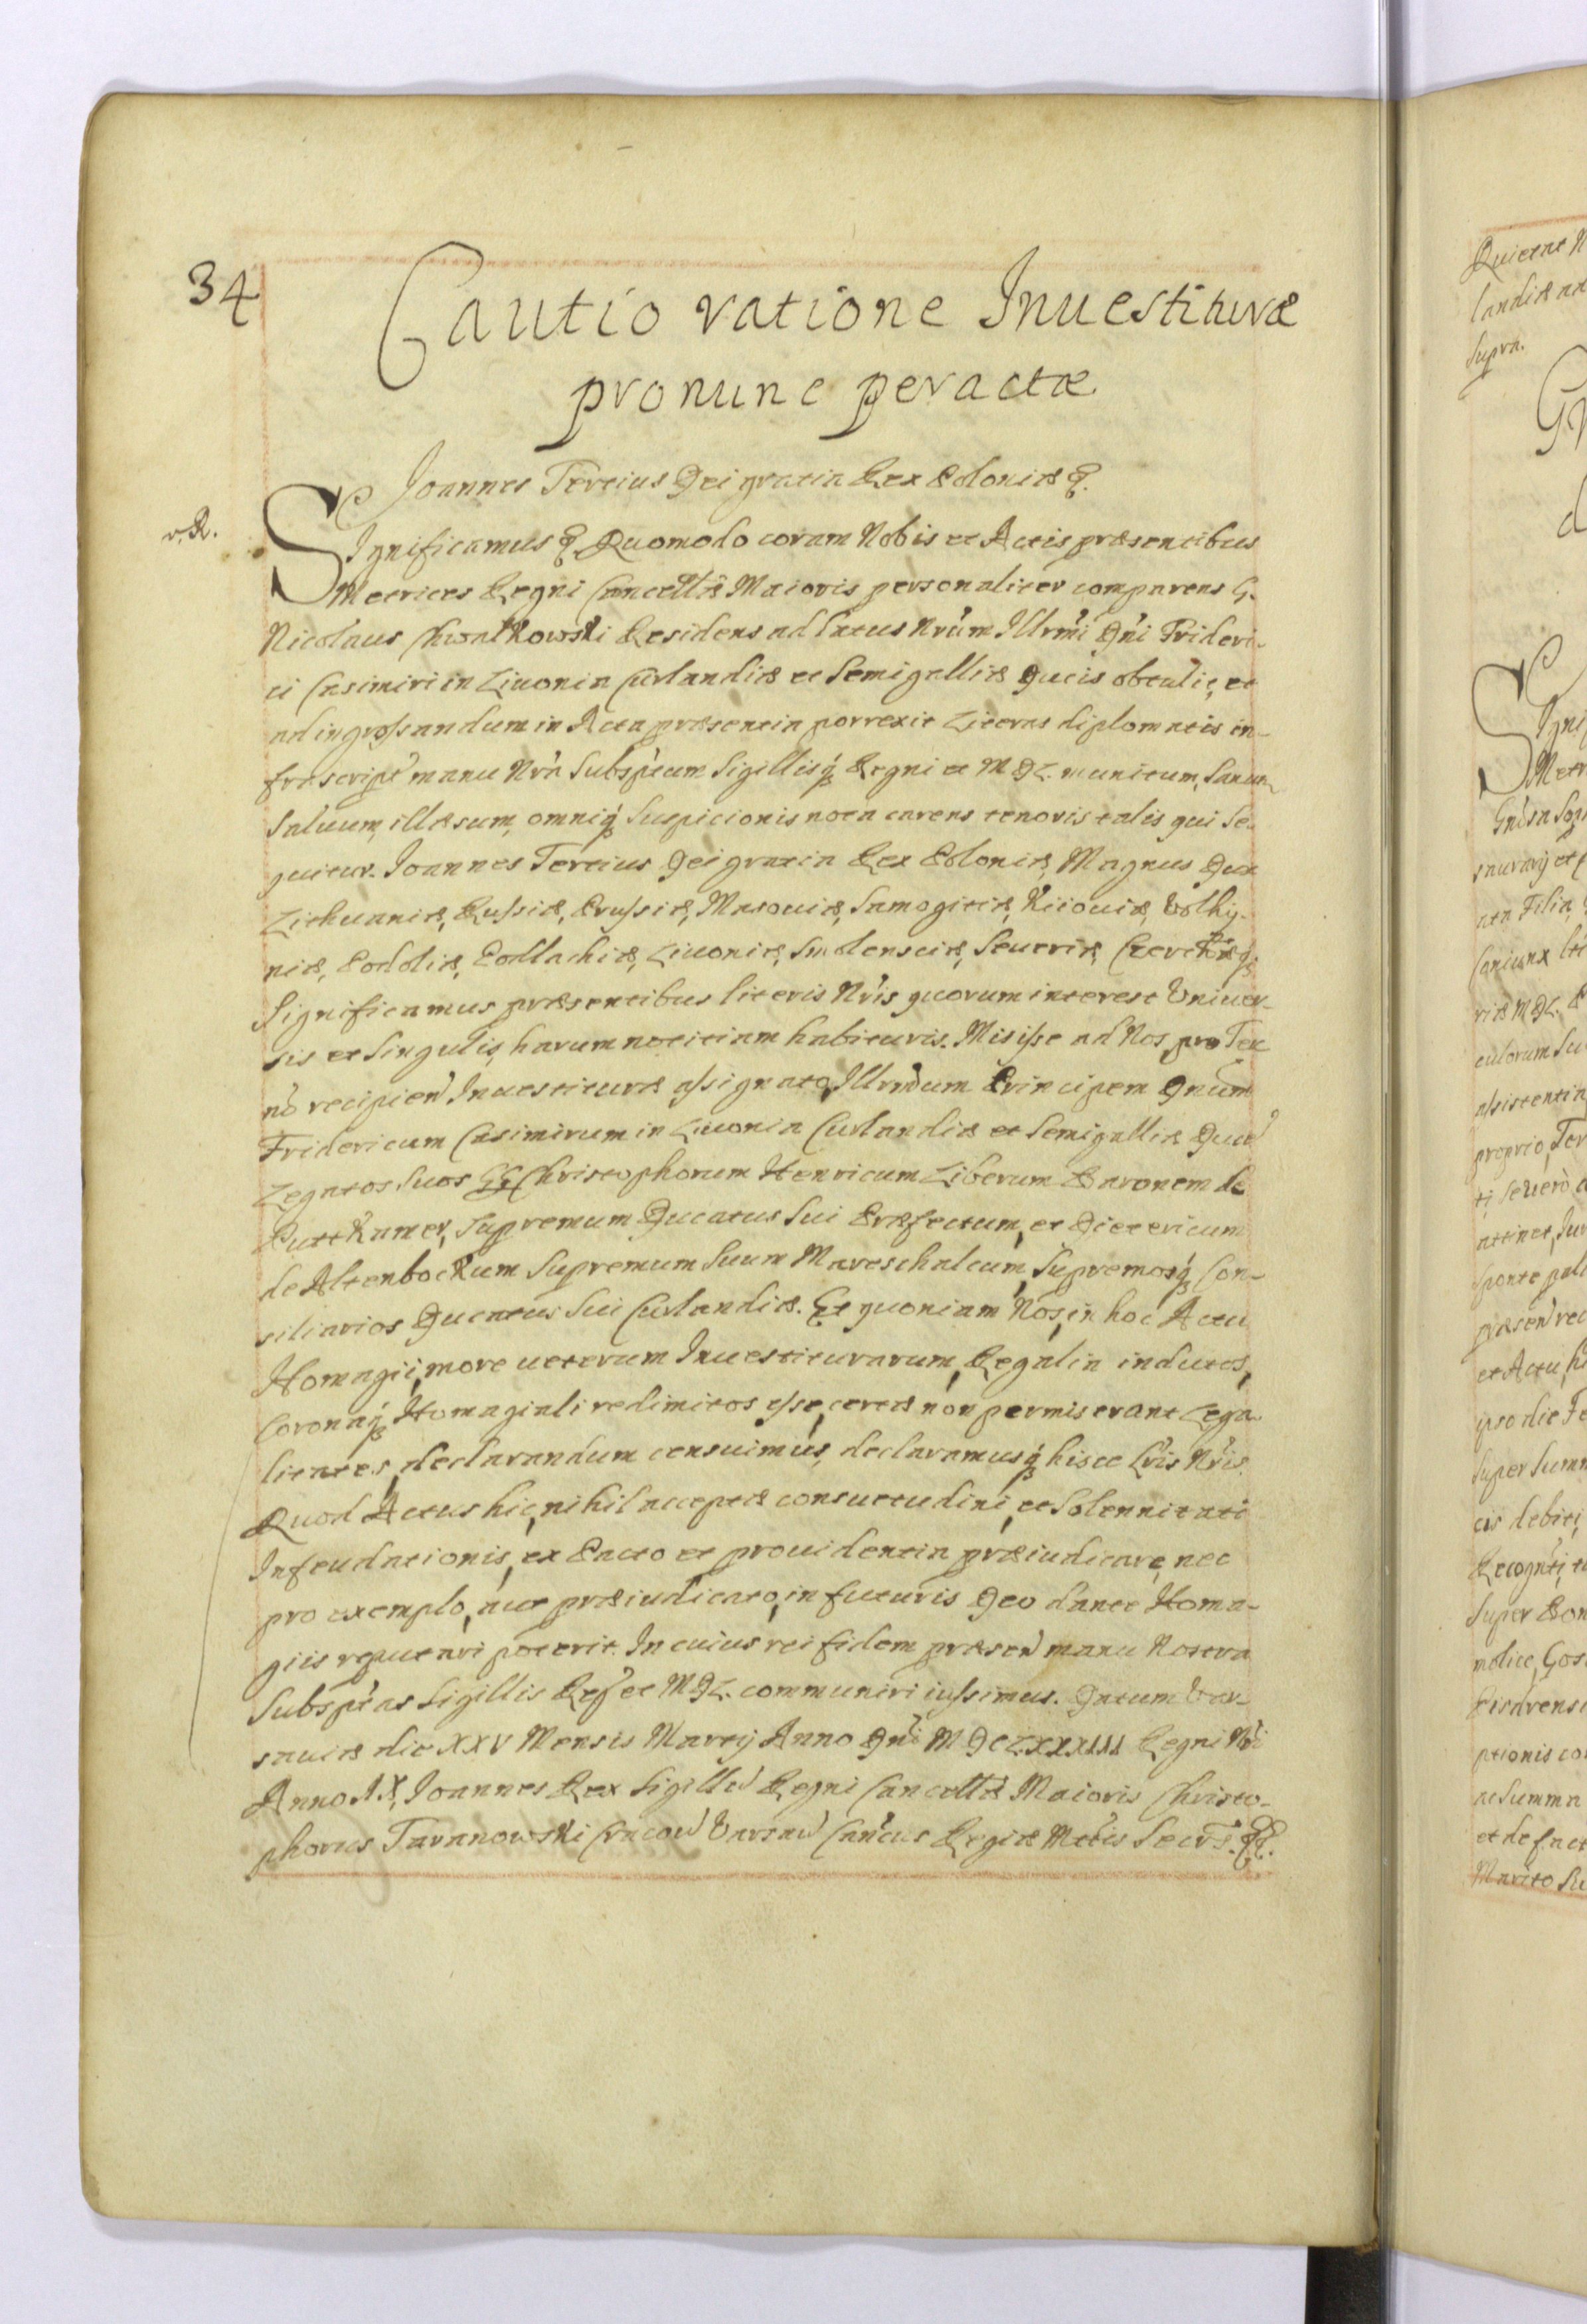 34
Cautio ratione Inuestituræ
pronunc peractæ
Joannes Tertius Dei gratia Rex Poloniæ &.
v. R.
Significamus &. Quomodo coram Nobis et Actis præsentibus
Metrices Regni Cancellæ Maioris personaliter comparens G.
Nicolaus Chwałkowski Residens ad latus Nrūm Illrm̄i Dn̄i Frideri-
ci Casimiri in Liuonia Curlandiæ et Semigalliæ Ducis obtulit, et
ad ingrossandum in Acta præsentia porrexit Literas diplomatis in-
frascript manu Nr̄a Subsp̄tum Sigillisq́ Regni et M D L. munitum, Sanum
Saluum, illæsum, omniq́ Suspicionis nota carens tenoris talis qui Se-
quitur. Joannes Tertius Dei gratia Rex Poloniæ, Magnus Dux
Lithuaniæ, Russiæ, Prussiæ, Masouiæ, Samogitiæ, Kiiouiæ, Volhy-
niæ, Podoliæ, Podlachiæ, Liuoniæ, Smolensciæ, Seueriæ, Czerchæq́.
Significamus præsentibus literis Nr̄is quorum interest Vniuer-
sis et Singulis, harum notitiam habituris. Misisse ad Nos, pro Ter-
no recipien Inuestituræ assignato, Illrmum Principem Dnum
Fridericum Casimirum in Liuonia Curlandiæ et Semigalliæ Duce
Legatos Suos GG Christophorum Henricum Liberum Baronem de
Puttkamer, Supremum Ducatus Sui Præfectum, et Dietericum
de Altenbockum Supremum Suum Mareschalcum, Supremosq́ Con-
siliarios Ducatus Sui Curlandiæ. Et quoniam Nos, in hoc Actu
Homagii, more ueterum Inuestiturarum, Regalia indutos,
Coronaq́ Homagiali redimitos esse, certæ non permiserant Lega-
litates, declarandum censuimus, declaramusq́ hisce Lr̄is Nr̄is.
Quod Actus hic, nihil acceptæ consuetudini, et Solennitati
Infeudationis, ex Pacto et prouidentia præiudicare, nec
pro exemplo, aut præiudicato, in futuris Deo dante Homa-
giis reputari poterit. In cuius rei fidem præsen manu Nostra
Subsp̄tas Sigillis Reg et M D L. communiri iussimus. Datum Var-
sauiæ die XXV Mensis Martij Anno Dn̄i M DCLXXXIII Regni Nr̄i
Anno IX, Joannes Rex Sigillū Regni Cancellæ Maioris Christo-
phorus Taranowski Cracou Varsau Can̄cus Regiæ Mattis Secrs.